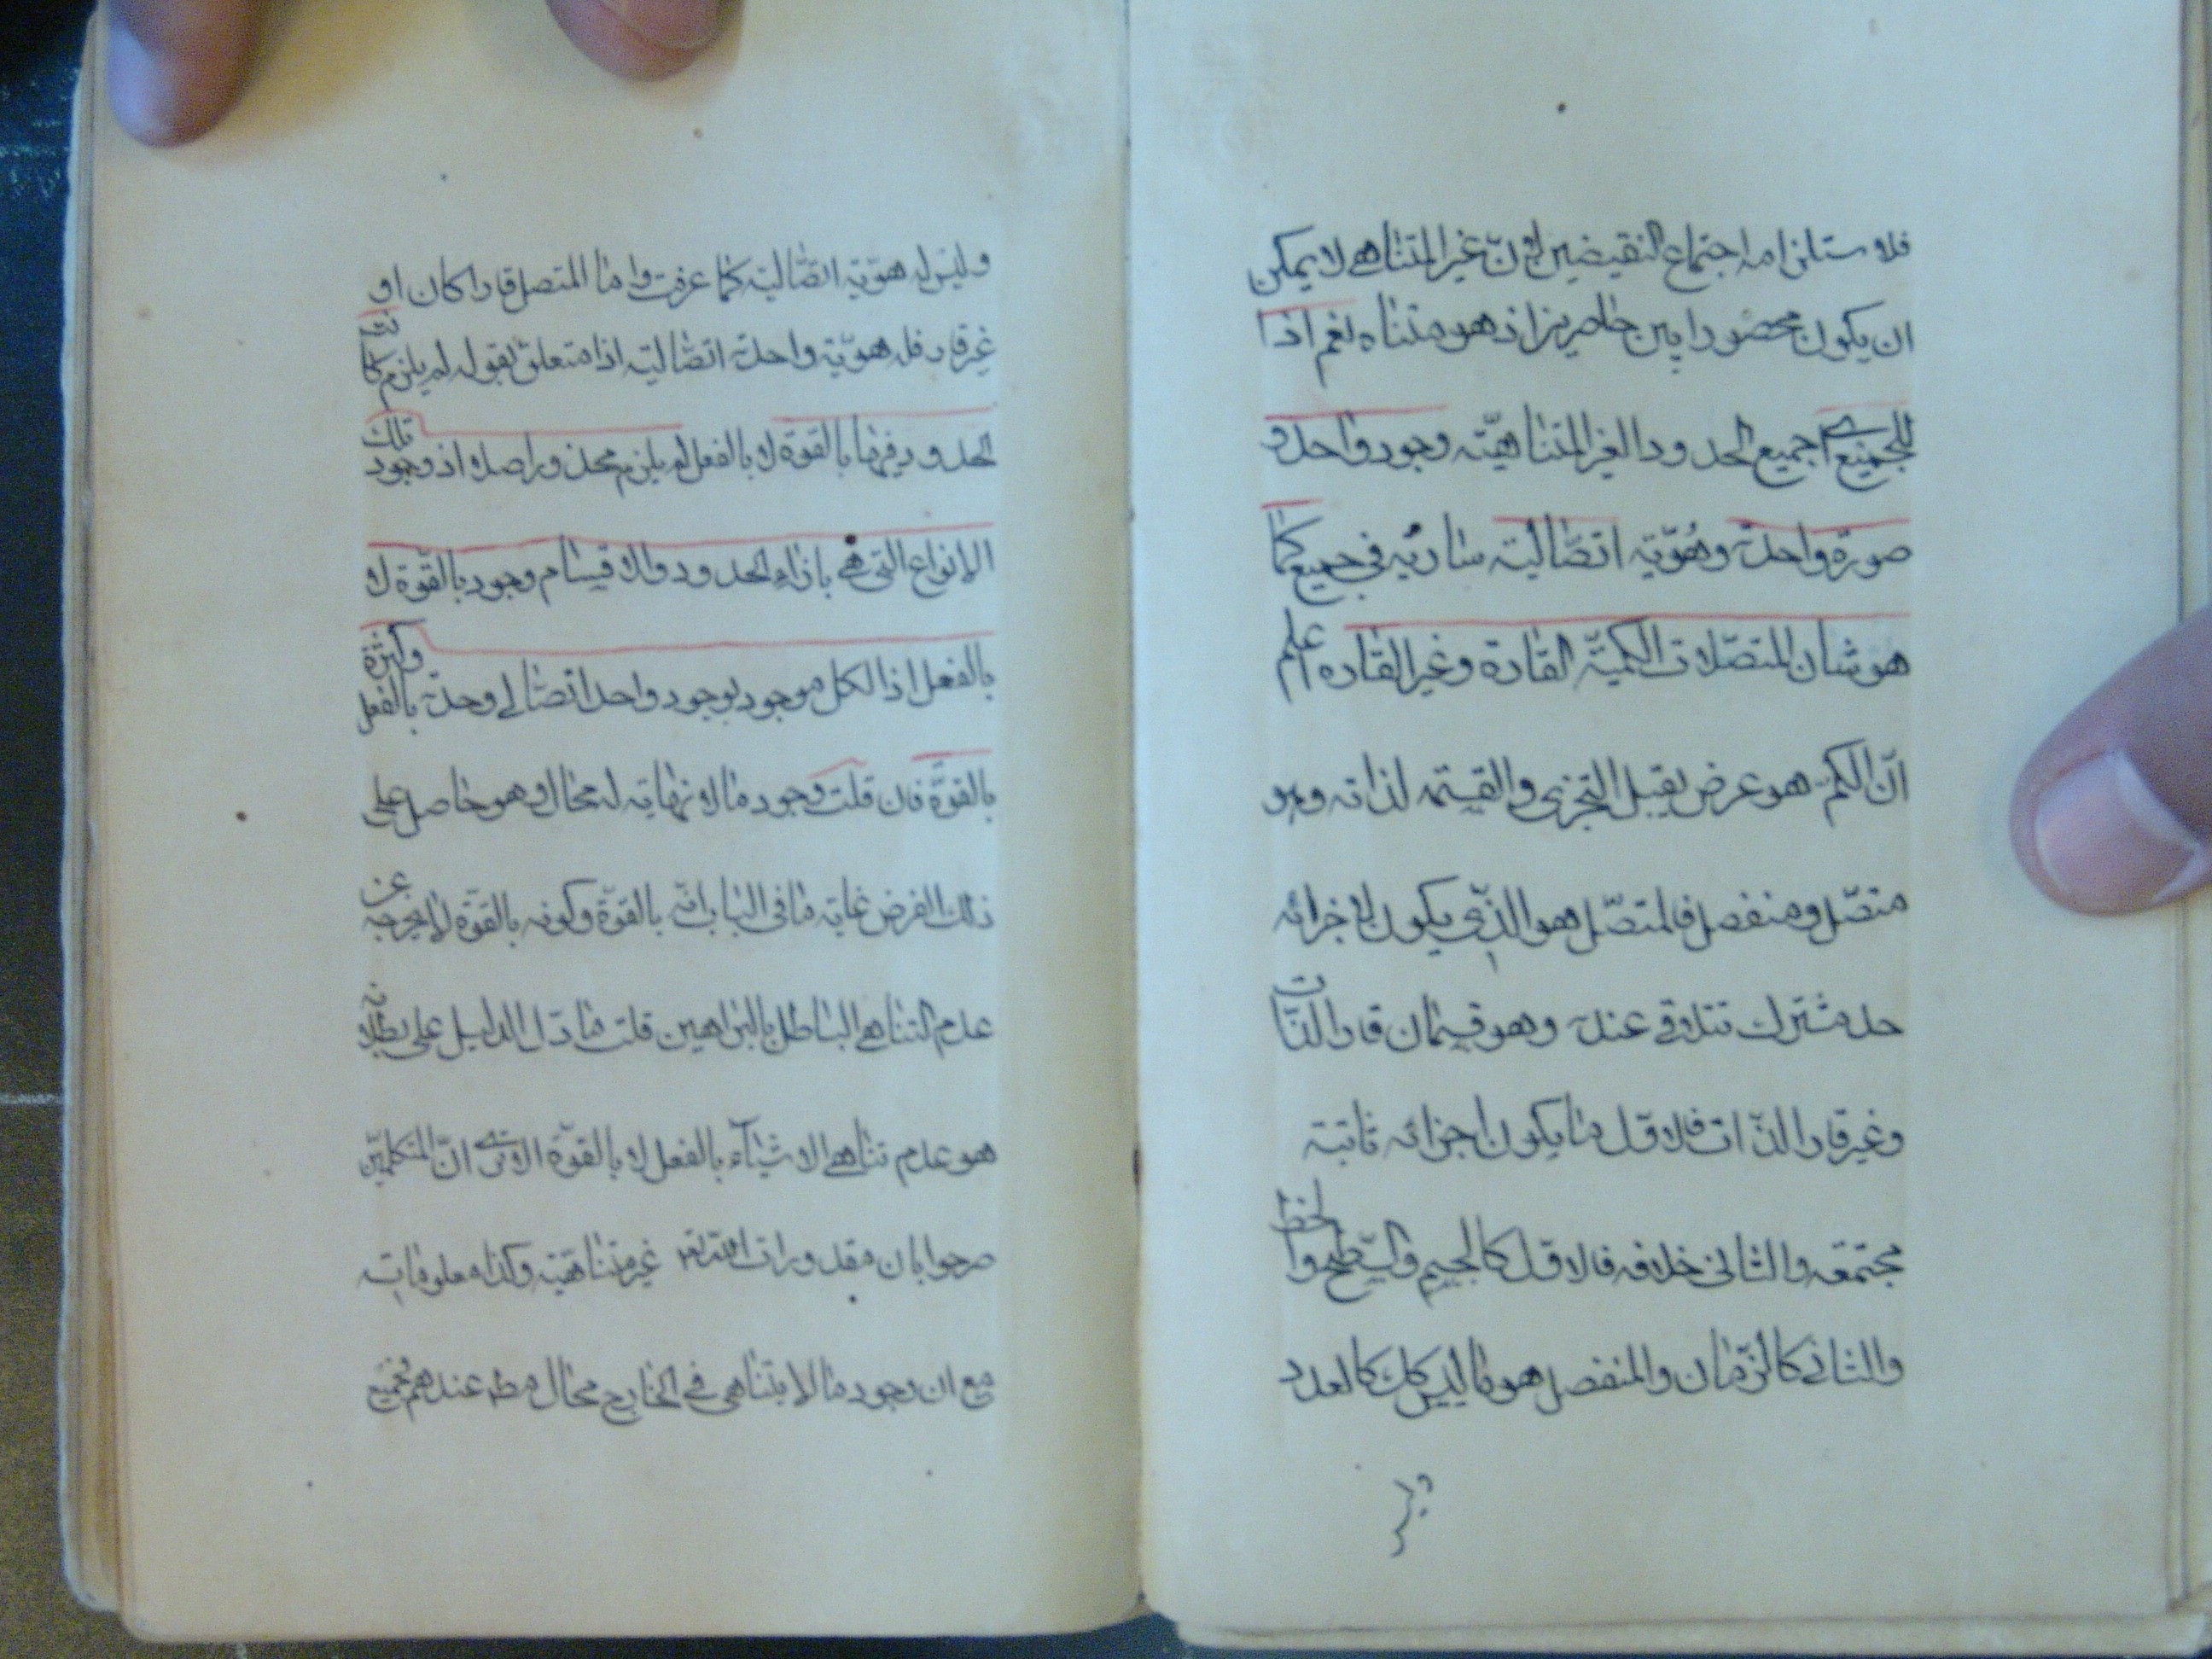 فلاستلزامه اجتماع النقيضين لانّ غير المتناهى لا يمكن
ان يكون محصورا بين حاصرين اذ هو متناه نعم اذا
للجميع اى جميع الحدود الغير المتناهيّته وجود واحد و
صورة واحدة وهُوّية اتصّاليّة سارية فى جميع كما
هو شان المتصّلات الكميّة القادة وغير القاده اعلم
انّ الكم هو عرض يقبل التجزى والقسمة لذاته وهو
متصّل ومنفصل فالمتصّل هو الذّى يكون لاجزائه
حد مشترك تتلاقى عنده وهو قسمان قار الذّات
وغير قار الذّات فالاوّل ما يكون اجزائه ثابتة
مجتمعة والثانى خلافه فالاوّل كالجسم والسّطح والخط
والثانى كالزّمان والمنفصل هو ما ليس كك كالعدد
وليس له هوّية اتصّالية كما عرفت واما المتصل قارا كان او
غير قار فله هويّة واحدة اتصّاليّة اذا متعلق بقوله لم يلزم كانت
الحدود فيها بالقوة لا بالفعل لم يلزم محذور اصلا اذ وجود تلك
الانواع التى هى باذاء الحدود والاقسام وجود بالقوّة لا
بالفعل اذ الكل موجود بوجود واحد اتصّالى وحدة بالفعل وكثرة
بالقوّة فان قلت وجود ما لا نهاية له محال وهو حاصل على
ذلك الفرض غاية ما فى الباب انّه بالقوّة وكونه بالقوّة لا يخرجه عن
عدم التناهى الباطل بالبراهين قلت ما دّل الدليل على بطلانه
هو عدم تناهى الاشياء بالفعل لا بالقوّة الا ترى انّ المتكلميّن
صرحوا بان مقدورات الله تعه غير متناهيّة وكذا معلوماته
مع ان وجود ما لا يتناهى فى الخارج محال مط عندهم فجميع